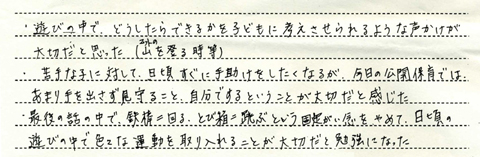 ・遊びの中で、どうしたらできるかを子どもに考えさせられるような声かけが
大切だと思った（山を登る時等）
・苦手な子に対して、日頃すぐに手助けをしたくなるが、今日の公開保育では、
あまり手を出さず見守ること、自分でするということが大切だと感じた
・最後の話の中で、鉄棒＝回る、とび箱＝跳ぶという固定がい念をやめて、日頃の
遊びの中で色々な運動を取り入れることが大切だと勉強になった